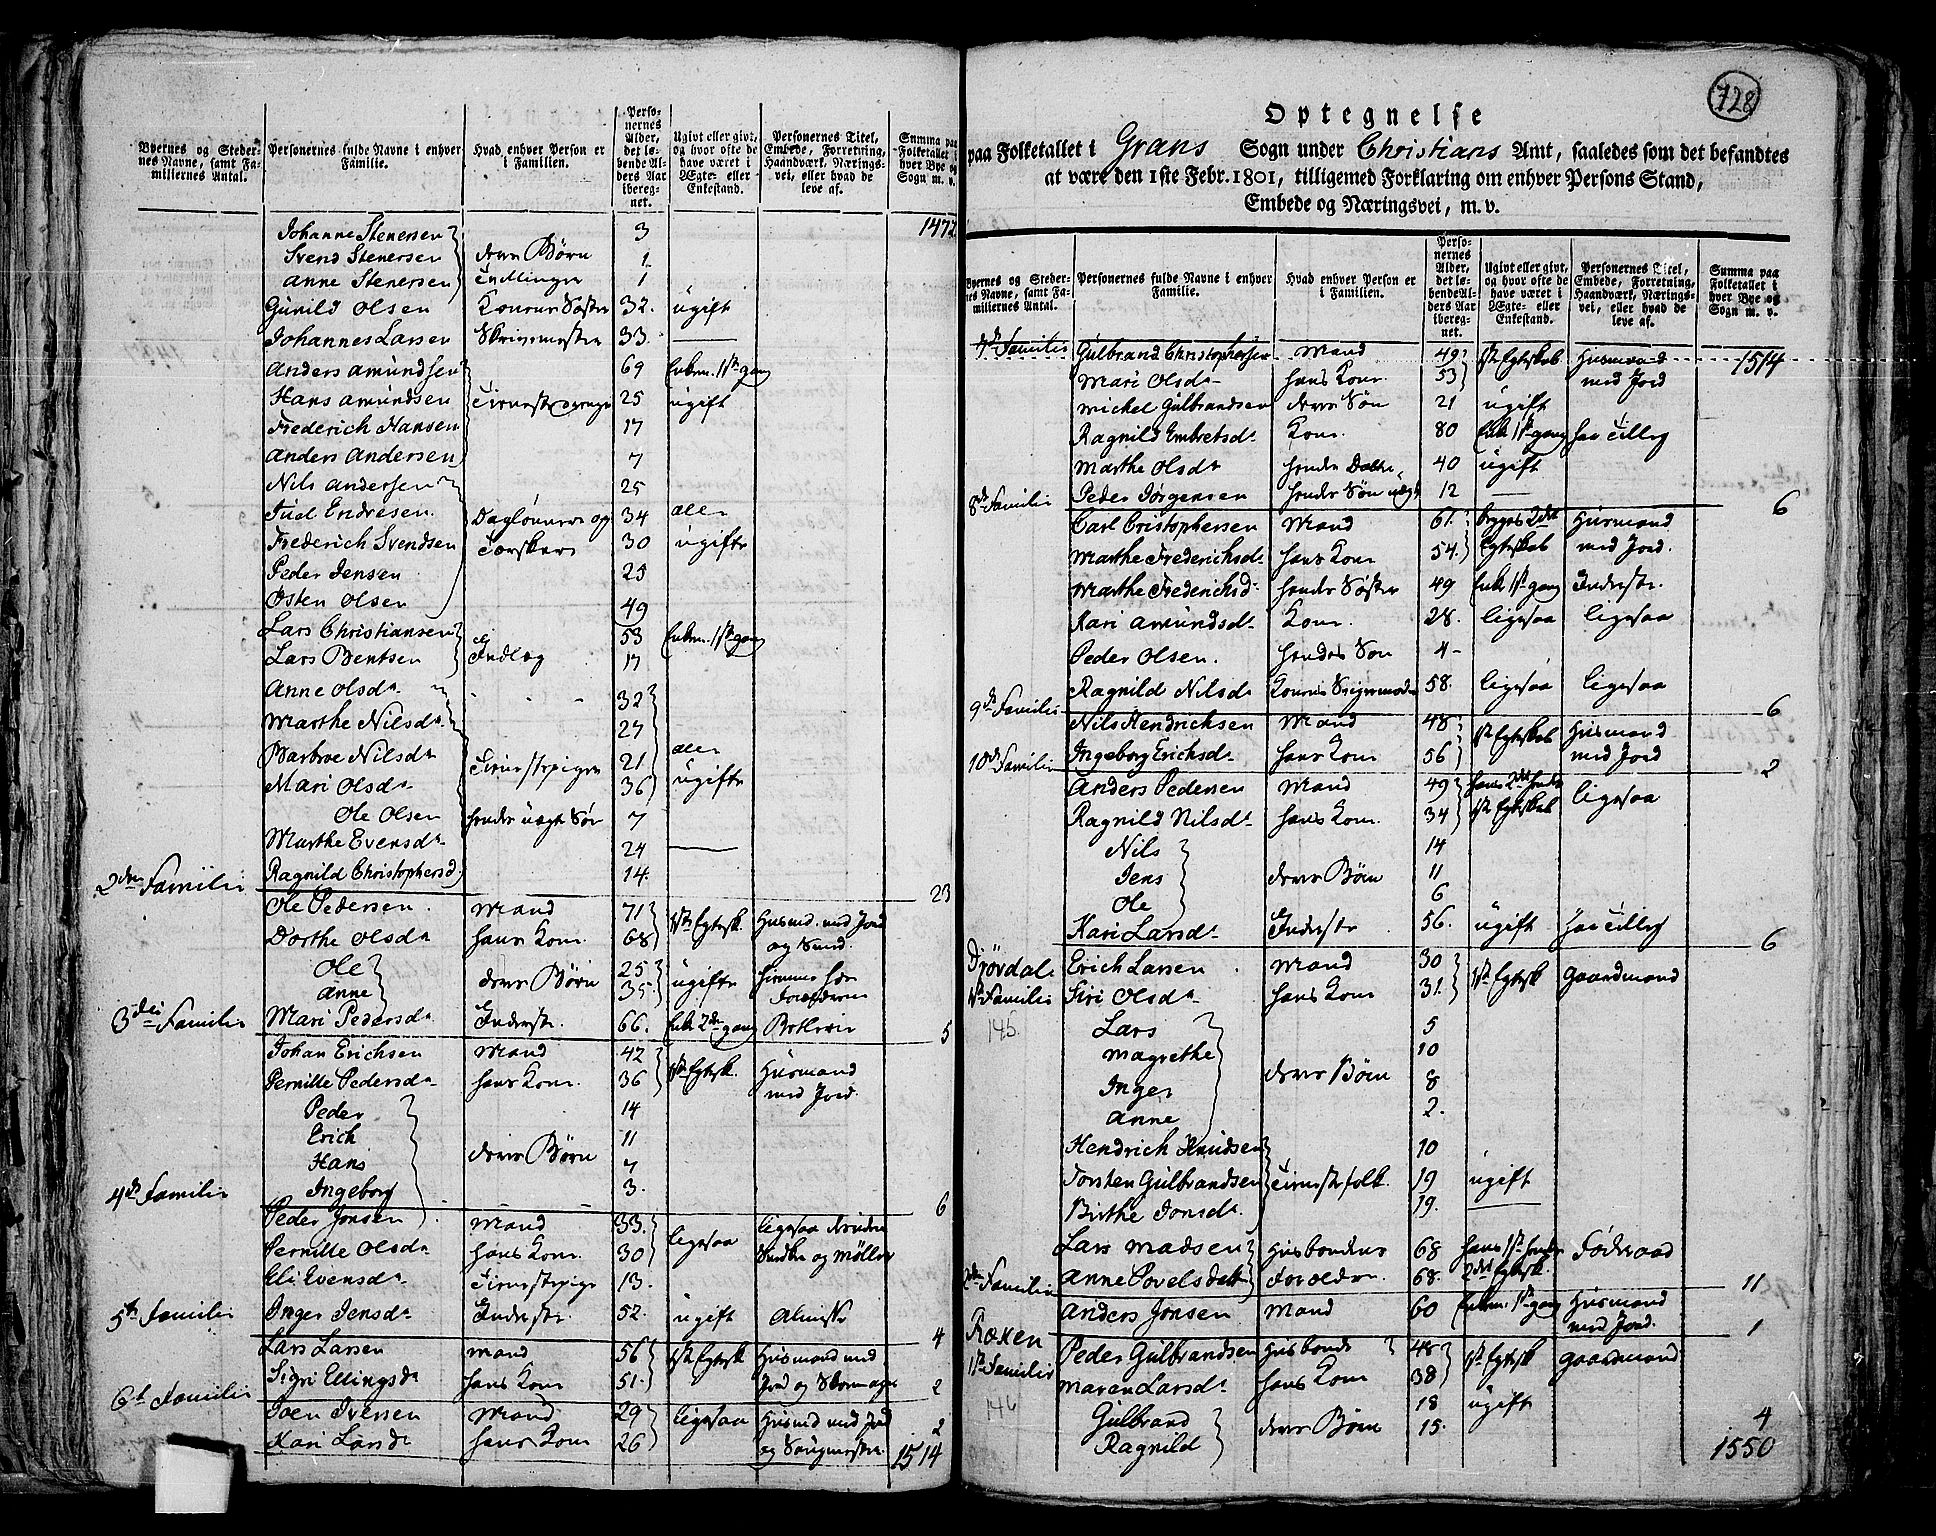 Byernes og Steder-
nes Navne, samt Fa-
miliernes Antal.
Personernes fulde Navne i enhver
Familie.
Hvad enhver Person er
i Familien.
Perso-
nernes
Alder,
det lø-
bende Al-
ders Aar
ibereg-
net.
Ugivt eller givt,
og hvor ofte de
have været i
Ægte- eller
Enkestand.
Personernes Titel,
Embede, Forretning,
Haandværk, Nærings-
vei, eller hvad de
leve af.
Summa paa
Folketallet i
hver Bye og
Sogn m. v.
Johanne Stenersen 3 1472
Svend Stenersen deres Børn 1
Anne Stenersen Tvillinger 1
Gunild Olsen Konens Søster 32. ugift
Johannes Larsen 33.
Anders Amundsen 69 Enkem. 1ste gang
Hans Amundsen 25 ugift
Frederich Hansen 17
Anders Andersen 7
Nils Andersen 25
Juel Endresen Daglønnere og 34 alle
Frederich Svendsen Tærskere 30 ugifte
Peder Jensen 25
Østen Olsen 49
Lars Christiansen 53 Enkem. 1ste gang
Lars Bentsen Indlæg 17
Anne Olsdr 32
Marthe Nilsdr 27
Barbroe Nilsdr Tienistepiger 21 alle
Mari Olsdr 36 ugifte
Ole Olsen hendes uægte Søn 7
Marthe Evensdr 24
Ragnild Christophersd 14.
2den Familie 23
Ole Pedersen Mand 71 1ste Egtesk. Husmd. med Jord
Dorthe Olsdr hans Kone 68 og Smed
Ole deres Børn 25 ugifte tienner hos
Anne 35 Forældrene
3die Familie Mari Pedersdr Inderste. 66. Enke 2den gang Betlerie 5
Johan Erichsen Mand 42 1ste Egtesk. Husmand
Pernille Pedersdr hans Kone 36 med Jord.
Peder 14
Erich deres Børn 11
Hans 7
4de Familie Ingeborg 3. 6
Peder Jonsen Mand 33. ligesaa ligesaa
Pernille Olsdr hans Kone. 30 og Møller
Eli Evensdr Tienistepige 13.
5te Familie Inger Jensdr Inderste. 52. ugift Almisse 4
Lars Larsen Mand 56 1ste Egtesk Husmand med
Sigri Ellingsdr hans Kone 51. Jord og Skomager 2
6te Familie
Joen Iversen Mand 29 ligesaa Husmd med Jord 2
Kari Larsdr hans Kone 26 1514
728
Optegnelse
paa Folketallet i Grans Sogn under Christians Amt, saaledes som det befandtes
at være den 1ste Febr. 1801, tilligemed Forklaring om enhver Persons Stand,
Embede og Næringsvei, m. v.
Byernes og Steder-
nes Navne, samt Fa-
miliernes Antal.
Personernes fulde Navne i enhver
Familie.
Hvad enhver Person er
i Familien.
Perso-
nernes
Alder,
det lø-
bende Al-
ders Aar
iberegn-
net.
Ugivt eller givt,
og hvor ofte de
have været i
Ægte- eller
Enkestand.
Personernes Titel,
Embede, Forretning,
Haandværk, Nærings-
vei, eller hvad de
leve af.
Summa paa
Folketallet i
hver Bye og
Sogn m. v.
7de Familie Gulbrand Christophersen Mand 49 1ste Egteskab Husmand 1514
Mari Olsdr hans Kone 53 med Jord
Michel Gulbrandsen deres Søn 21 ugift
Ragnild Embretsdr Kone. 80 Enke 1ste gang har Tillæg
Marthe Olsdr hendes Datter 40 ugift
Peder Jørgensen hendes Søn uægte 12
8de Familie 6
Carl Cristophersen Mand 61. begges 2det Husmand
Marthe Frederichsdr hans Kone 54. Egteskab med Jord.
Marthe Frederichsd. hendes Søster 49 Enke 1ste gang Inderste.
Kari Amundsdr Kone. 28. ligesaa ligesaa
Peder Olsen. hendes Søn 4
Ragnild Nilsdr Konens Svigermoder 58. ligesaa ligesaa
9de Familie 6
Nils Hendrichsen Mand 48 1ste Egteskab Husmand
Ingeborg Erichsdr hans Kone 56 med Jord
10de Familie 2
Anders Pedersen Mand 49 hans 2det hendes ligesaa
Ragnild Nilsdr hans Kone 34 1ste Egteskab
Nils 14
Jens deres Børn 11
Ole 6
Kari Larsdr Inderste 56. ugift har Tillæg
6
Djøvdal Erich Larsen Mand 30 1ste Egtesk Gaardmand
1ste Familie Siri Olsdr hans Kone 31.
145. Lars 5
Magrethe deres Børn 10
Inger 8
Anne 2.
Hendrich Knudsen 10
Torsten Gulbrandsen Tienistefolk. 19 ugift
Birthe Jonsdr 19.
Lars Madsen Husbondens 68 hans 1ste hendes Føderaad
Anne Povelsdatt Forældre 68. 2det Egtesk.
2den Familie 11
Anders Jonsen Mand 60 Enkem. 1ste gang Husmand
med Jord. 1
Roxen
1ste Familie Peder Gulbrandsen Husbonde 48 1ste Egtesk Gaardmand
Maren Larsdr hans Kone 38
146 Gulbrand deres Børn 18 ugift
Ragnild 15. 4
1550